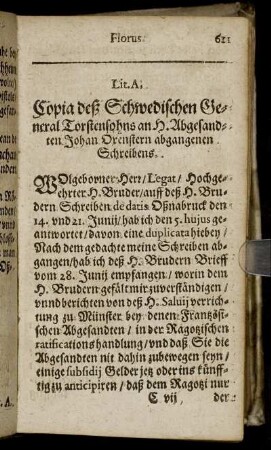 Florus. 621
Lit. A.
Copia deß Schwedischen Ge-
neral Torstensohns an H. Abgesand-
ten Johan Oxenstern abgangenen
Schreibens.
WOlgeborner Herr/Legat/ Hochge-
ehrter H. Bruder/auff deß H. Bru-
dern Schreiben de datis Oßnabruck den
14. vnd 21. Junij/hab ich den 5. hujus ge-
antwortet/davon eine duplicata hiebey/
Nach dem gedachte meine Schreiben ab-
gangen/hab ich deß H. Brudern Brieff
vom 28. Junij empfangen/ worin dem
H. Brudern gefält mir zuverständigen/
vnnd berichten von deß H. Salvij verrich-
tung zu Münster bey denen Frantzösi-
schen Abgesandten/ in der Ragotzischen
ratifications handlung/vnd daß Sie die
Abgesandten nit dahin zubewegen seyn/
einige subsidij Gelder jetz oder ins künff-
tig zu anticipiren/ daß dem Ragotzi nur
C vij der